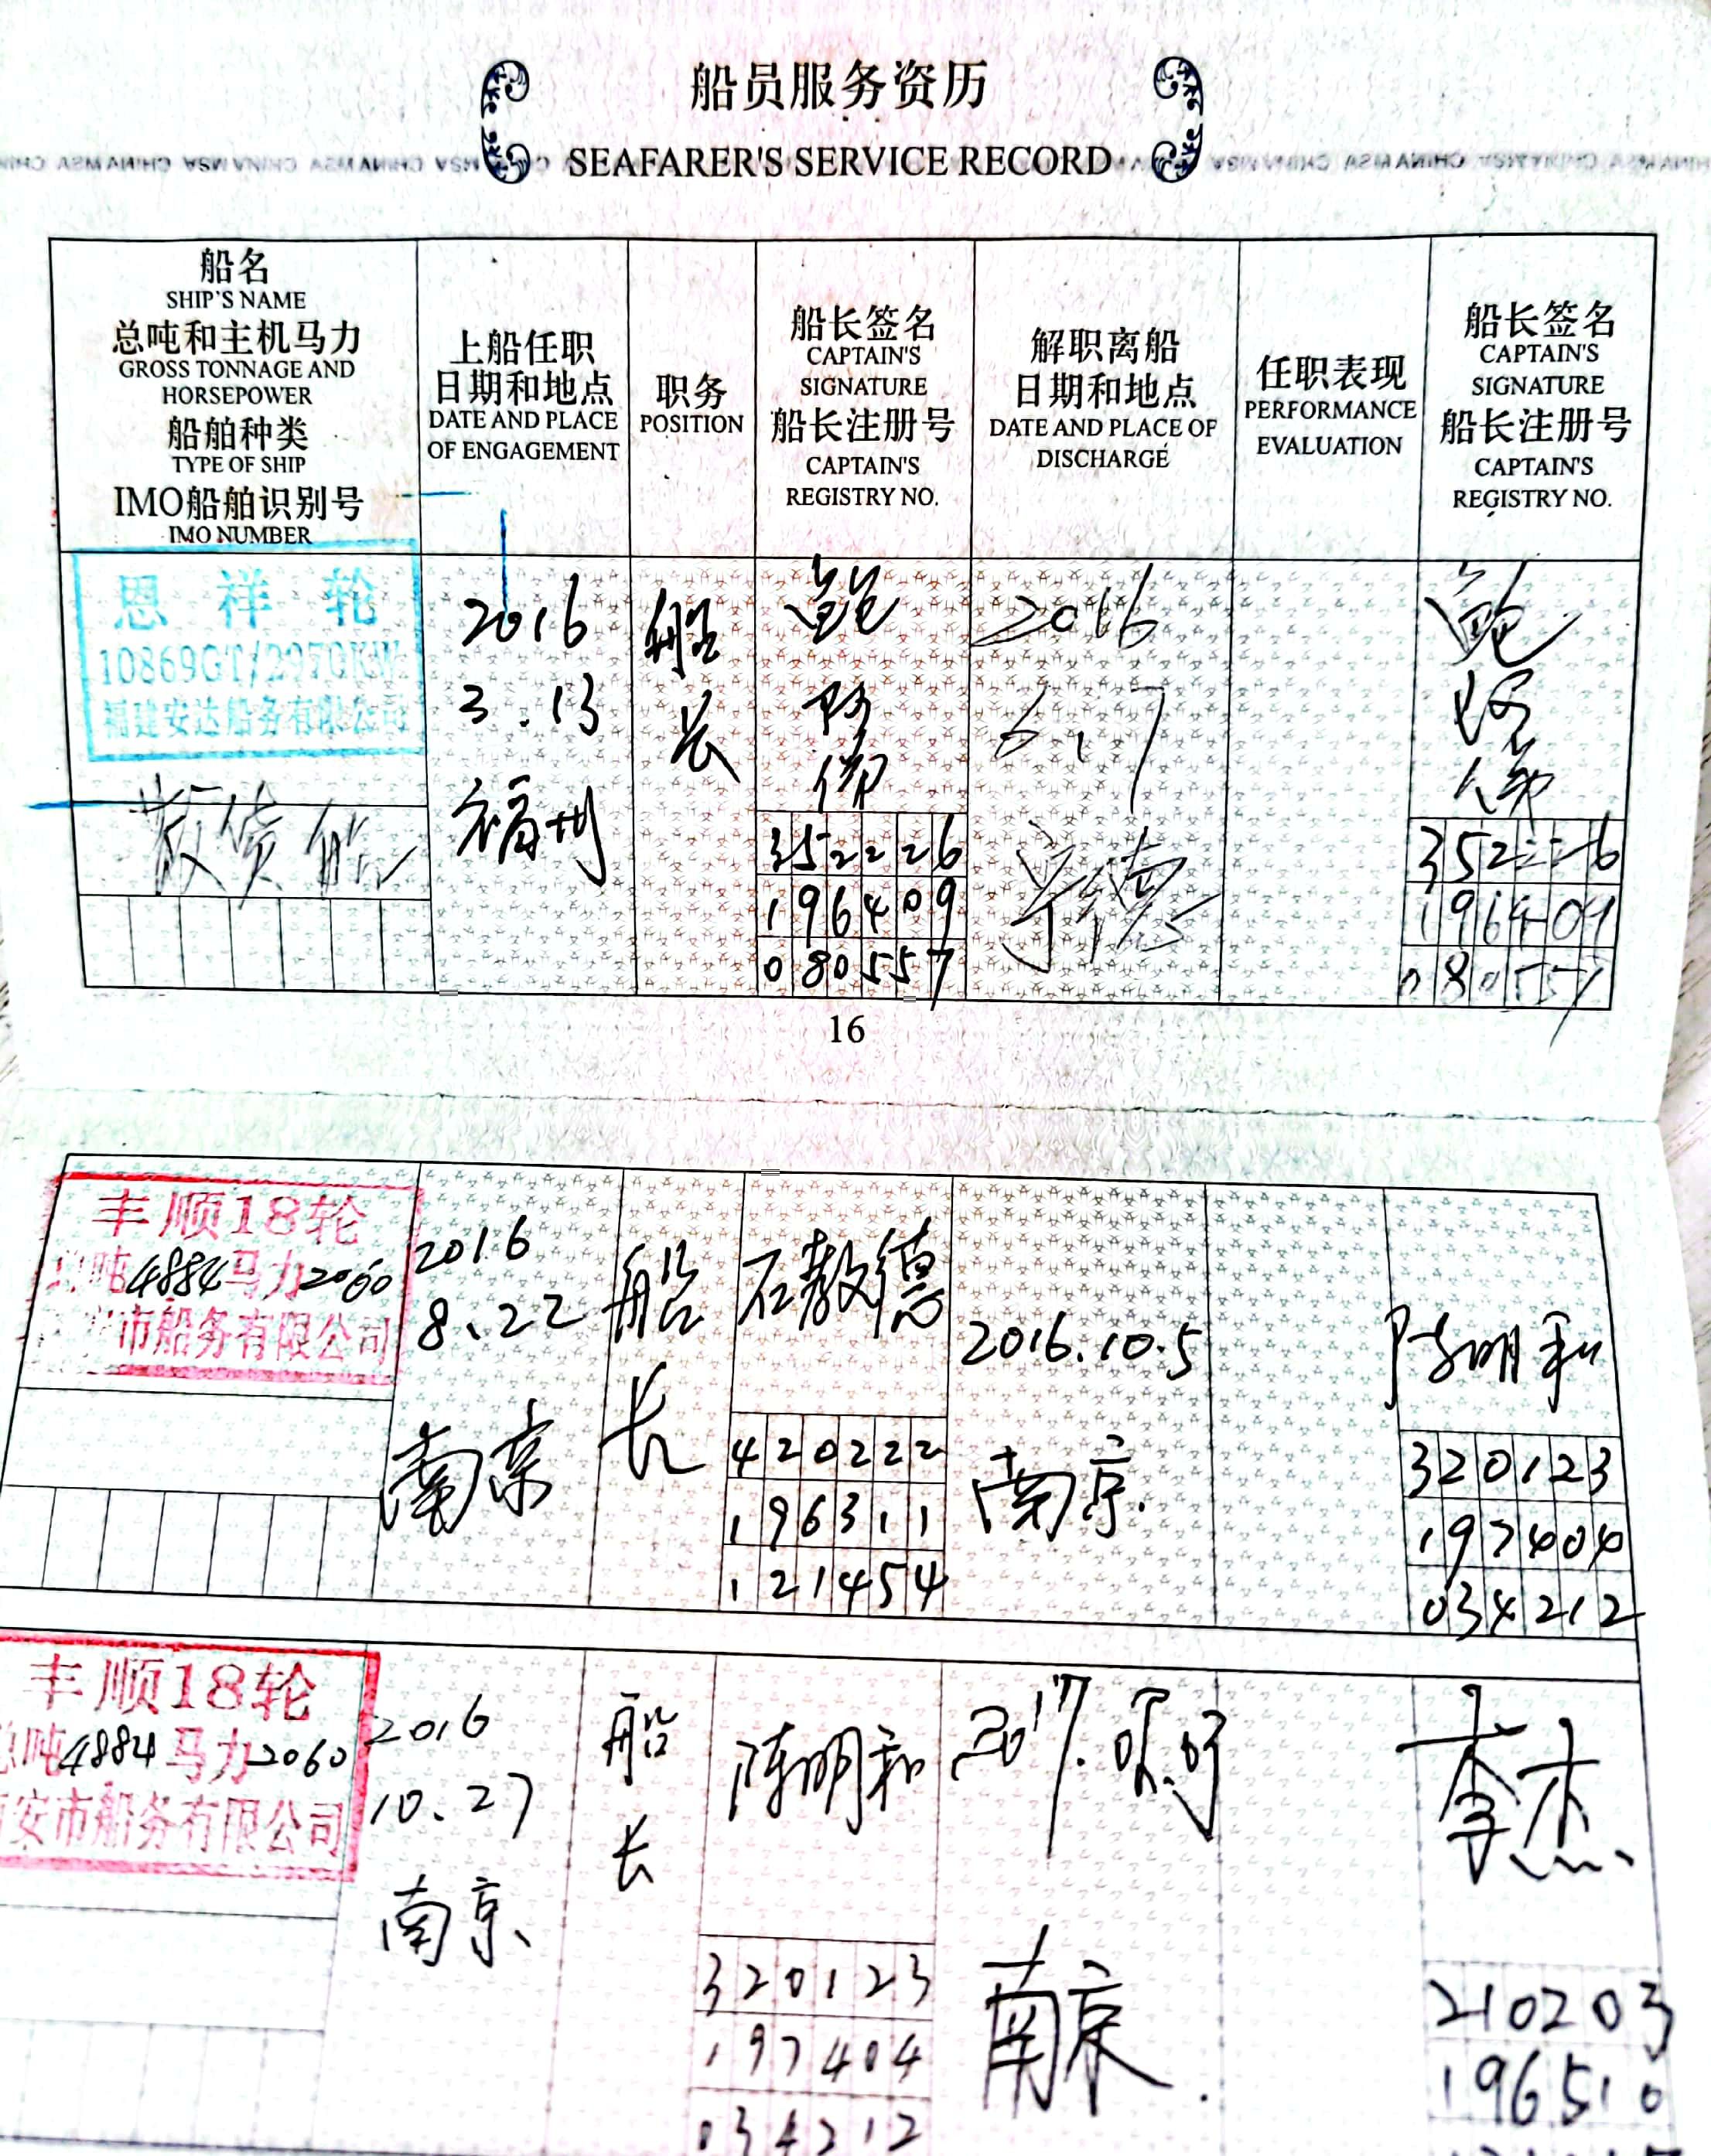 船员服务资历
SEAFARER'S SERVICE RECORD
船名
SHIP'S NAME
总吨和主机马力
GROSS TONNAGE AND
HORSEPOWER
船舶种类
TYPE OF SHIP
IMO船舶识别号
IMO NUMBER
上船任职
日期和地点
DATE AND PLACE
OF ENGAGEMENT
职务
POSITION
船长签名
CAPTAIN'S
SIGNATURE
船长注册号
CAPTAIN'S
REGISTRY NO.
解职离船
日期和地点
DATE AND PLACE OF
DISCHARGE
任职表现
PERFORMANCE
EVALUATION
船长签名
CAPTAIN'S
SIGNATURE
船长注册号
CAPTAIN'S
REGISTRY NO.
恩祥轮
10869GT/2970KW
福建安达船务有限公司
散货船
2016
3.13
福州
船
长
鲍
352226
196409
080557
2016
6.7
宁德
鲍
352226
196409
080557
16
丰顺18轮
总吨4884马力2060
市船务有限公司
2016
8.22
南京
船
长
石教德
420222
196311
121454
2016.10.5
南京.
陈明和
320123
197404
034212
丰顺18轮
总吨4884马力2060
安市船务有限公司
2016
10.27
南京
船
长
陈明和
320123
197404
034212
2017.
南京.
李杰
210203
196510